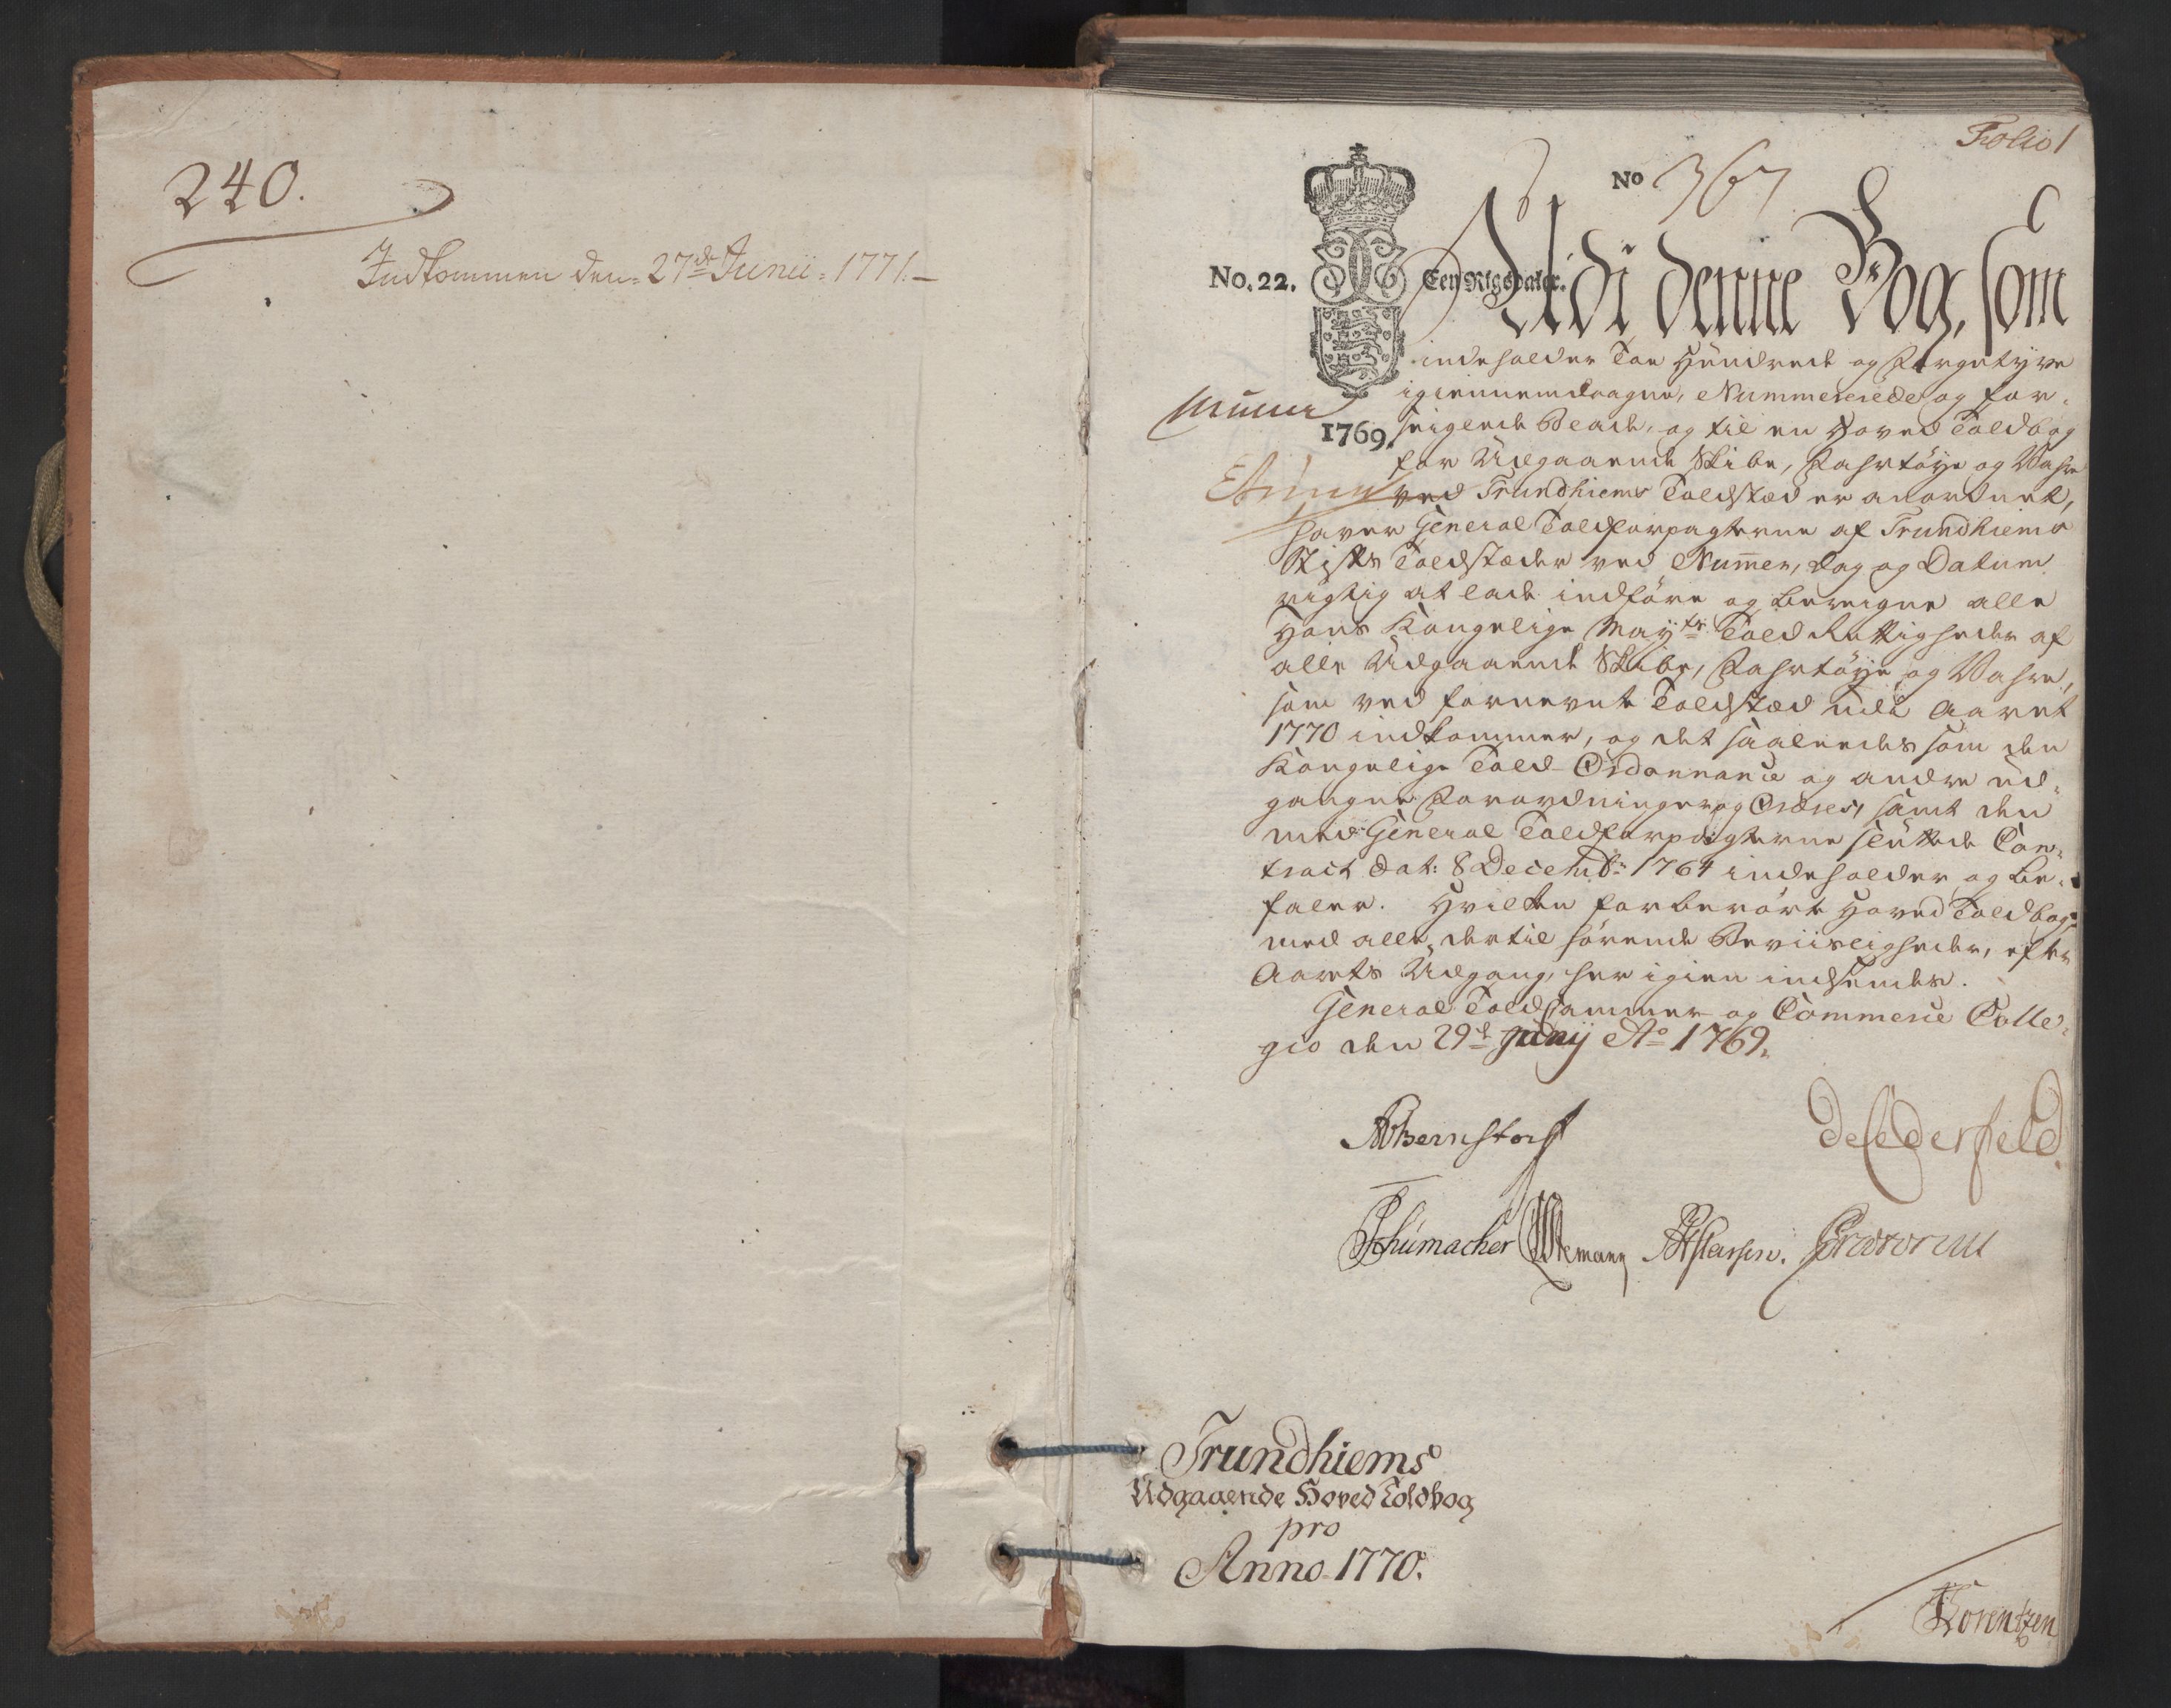 240.
Indkommen den 27de Junii 1771.
Folio 1
No 367
No. 22. Een Rigsdaler.
Udi denne Bog, som
indeholder Toe Hundrede og Fyrgetyve
igiennemdragne, Nummererede og for-
seiglede Blade, og til en Hoved Toldbog
1769.
for Udgaaende Skibe, Fahrtöye og Vahre
ved Trundhiems Toldsted er anordnet,
haver General Toldforpagterne af Trundhiems
Stifts Toldstæder ved Numer, Dag og Datum
rigtig at lade indföre og beregne alle
Hans Kongelige Mayts Told Rettigheder af
alle Udgaaende Skibe, Fahrtöye og Vahre,
som ved fornevnte Toldsted udi Aaret
1770 indkommer, og det saaledes som den
Kongelige Told-Ordonnance og andre ud-
gangne Forordninger og Ordres, samt den
med General Toldforpagterne sluttede Con-
tract dat: 8 Decembr: 1764 indeholder og be-
faler. Hvilken forberörte Hoved Toldbog
med alle dertil hörende Beviisligheder, efter
Aarets Udgang, her igien indsendes.
General Toldkammer og Commerce Colle-
gio den 29de Junij Ao 1769.
Bernstorff
de Cederfeld.
Schumacher
Trundhiems
Udgaaende Hoved Toldbog
pro
Anno 1770.
Lorentzen